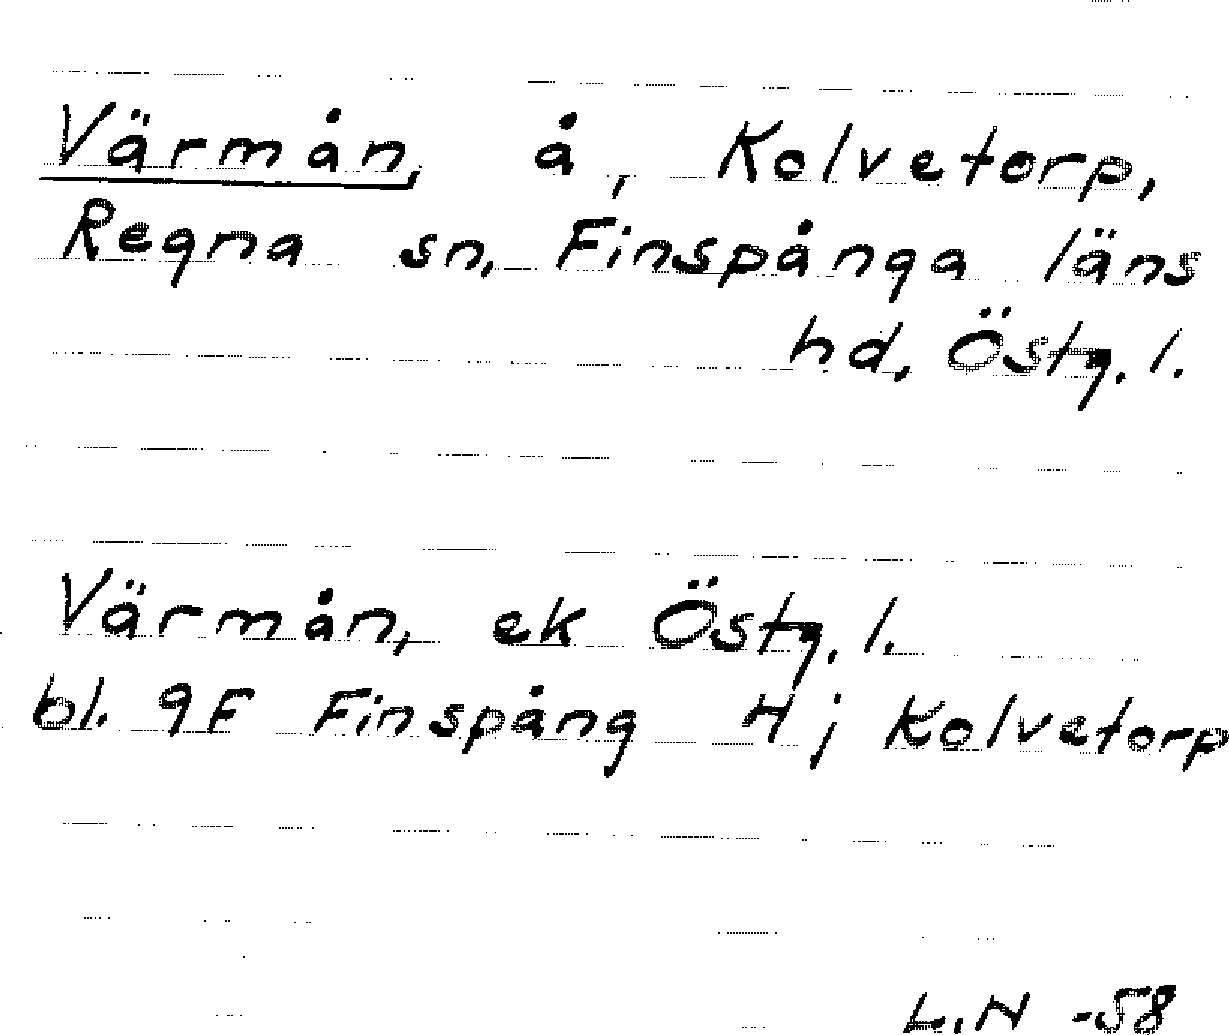 Värmån, å, Kolvetorp,
Regna sn, Finspånga läns
hd, Östg. l.
Värmån, ek Östg. l.
bl. 9F Finspång 4j Kolvetorp
L.N -58